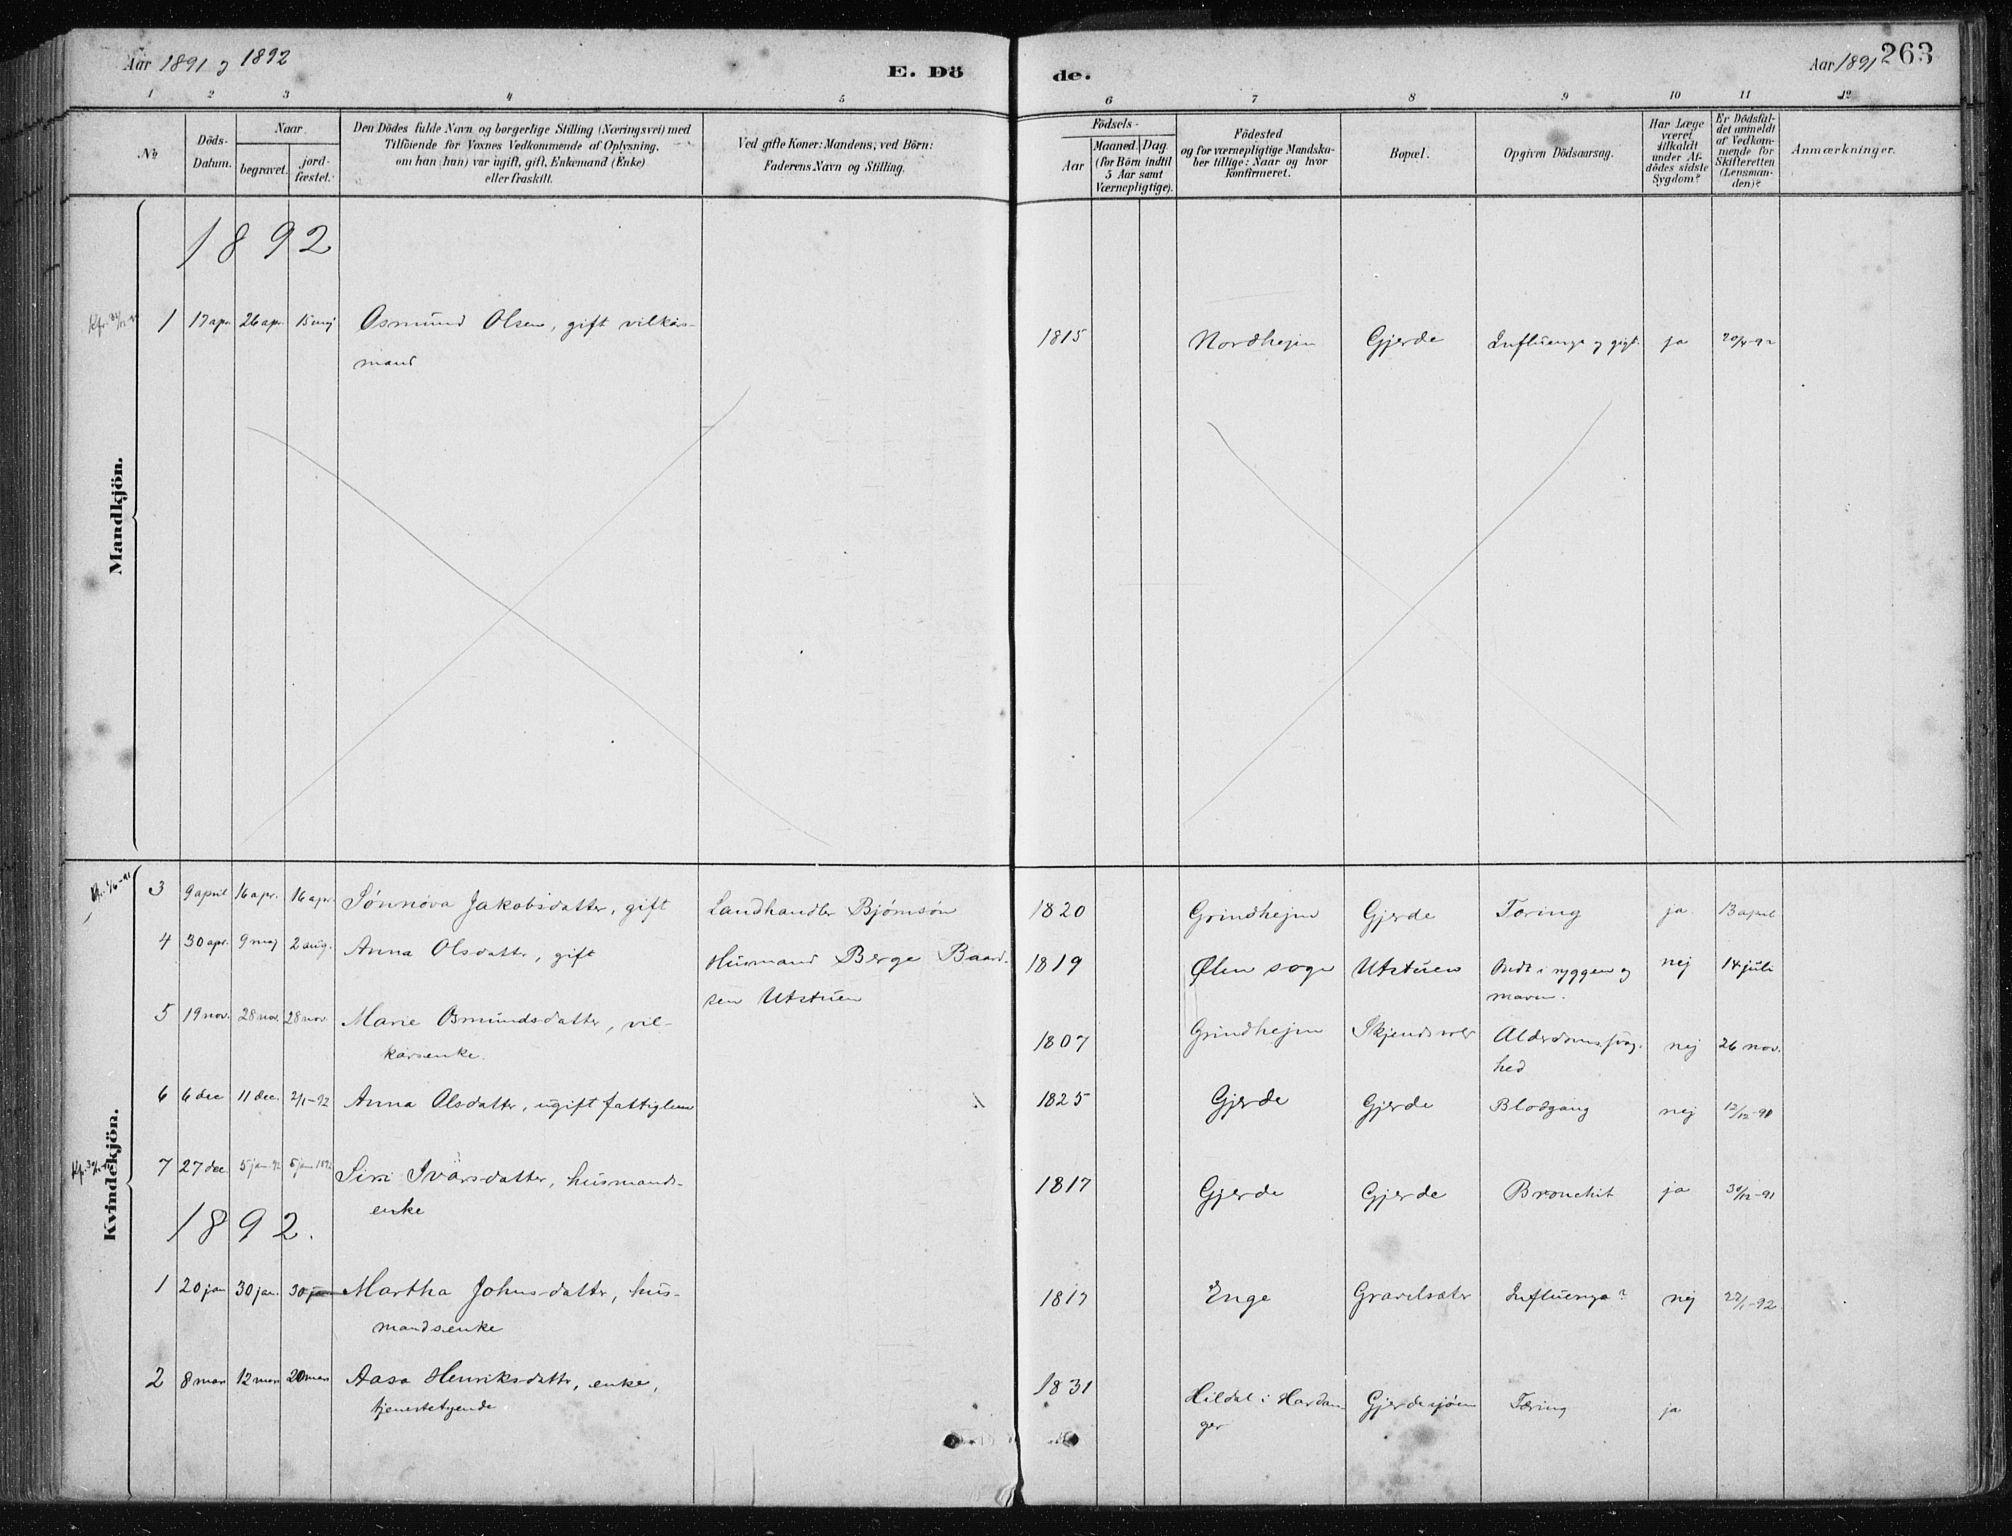 Aar 1891 og 1892
E. Dö
de.
Aar 1891
263
1 2 3 4 5 6 7 8 9 10 11 12
No
Döds-Datum.
Naar
begravet.
jord-fæstet.
Den Dödes fulde Navn og borgerlige Stilling (Næringsvei) med
Tilföiende for Voxnes Vedkommende af Oplysning,
om han (hun) var ugift, gift, Enkemand (Enke)
eller fraskilt.
Ved gifte Koner: Mandens, ved Börn:
Faderens Navn og Stilling.
Födsels-
Aar
Maaned. Dag
(for Börn indtil
5 Aar samt
Værnepligtige).
Födested
og for værnepligtige Mandska-
ber tillige: Naar og hvor
konfirmeret.
Bopæl.
Opgiven Dödsaarsag.
Har Læge
været
tilkaldt
under Af-
dödes sidste
Sygdom?
Er Dödsfal-
det anmeldt
af Vedkom-
mende for
Skifteretten
(Lensman-
den)?
Anmærkninger.
Mandkjön.
1892
1 17 apr. 26 apr. 15 maj Osmund Olsen, gift vilkårs-
mand
1815 Nordhejm Gjerde Influenza og gigt. ja 20/4-92
Kvindekjön.
3 9 april 16 apr. 16 apr. Sønnøva Jakobsdatter, gift Landhandler Bjørnsøn 1820 Grindhejm Gjerde Tæring ja 13 april
4 30 apr. 9 maj 2 aug. Anna Olsdatter, gift Husmand Berge Baard-
sen Utstuen
1819 Ølen sogn Utstuen i ryggen og
maven.
nej 14 juli
5 19 nov. 28 nov. 28 nov. Marie Osmundsdatter, vil-
kårsenke.
1807 Grindhejm Alderdomssvag-
hed
nej 26 nov.
6 6 dec 11 dec. 2/1-92 Anna Olsdatter, ugift fattiglem 1825 Gjerde Gjerde Blodgang nej 12/12-91
7 27 dec. 5 jan-92 5 jan 1892 Siri Ivarsdatter, husmands-
enke
1817 Gjerde Gjerde Bronchit ja 30/12-91
1892.
1 20 jan 30 jan. 30 jan Martha Johnsdatter, hus-
mandsenke
1817 Enge Influenza? nej 27/1-92.
2 8 mars 12 mars 20 mars Aasa Henriksdatter, enke,
tjenestetyende
1831 Hildal i Hardan-
ger
Gjerdesjøen Tæring ja